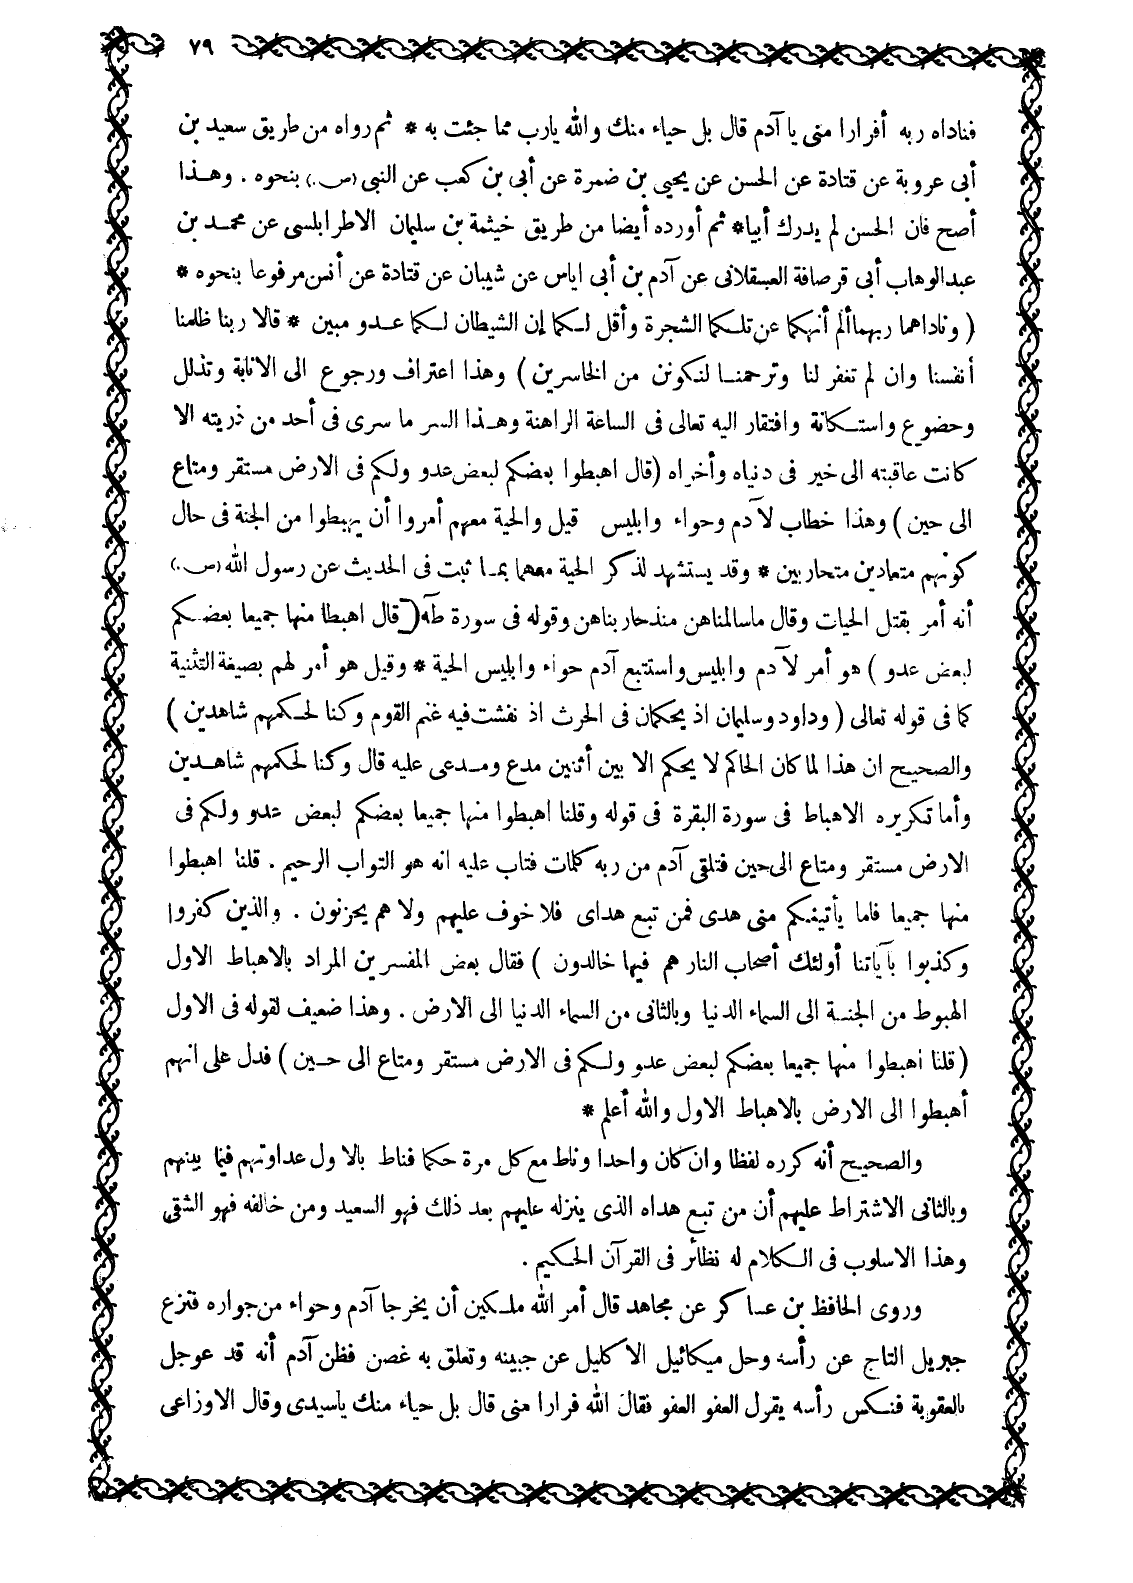 ٧٩
فناداه ربه أفرارا منى يا آدم قال بل حياء منك والله يارب مما جئت به * ثم رواه من طريق سعيد بن
أبى عروبة عن قتادة عن الحسن عن يحيى بن ضمرة عن أبى بن كعب عن النبى (ص.) بنحوه . وهـذا
أصح فان الحسن لم يدرك أبيا* ثم أورده أيضا من طريق خيثمة بن سليمان الاطرابلسى عن محمـد بن
عبدالوهاب أبى قرصافة العسقلانى عن آدم بن أبى اياس عن شيبان عن قتادة عن أنس مرفوعا بنحوه *
( وناداهما ربهما ألم أنهكما عن تلـكما الشجرة وأقل لـكما إن الشيطان لـكما عـدو مبين * قالا ربنا ظلمنا
أنفسنا وان لم تغفر لنا وترحمنـا لنكونن من الخاسرين ) وهذا اعتراف ورجوع الى الانابة وتذلل
وخضوع واستـكانة وافتقار اليه تعالى فى الساعة الراهنة وهـذا السر ما سرى فى أحد من ذريته الا
كانت عاقبته الى خير فى دنياه وأخراه (قال اهبطوا بعضكم لبعض عدو ولكم فى الارض مستقر ومتاع
الى حين ) وهذا خطاب لآدم وحواء وابليس قيل والحية معهم أمروا أن يهبطوا من الجنة فى حال
كونهم متعادين متحاربين * وقد يستشهد لذكر الحية معهما بمـا ثبت فى الحديث عن رسول الله (ص.)
أنه أمر بقتل الحيات وقال ماسالمناهن منذحاربناهن وقوله فى سورة طه ( قال اهبطا منها جميعا بعضـكم
لبعض عدو ) هو أمر لآدم وابليس واستتبع آدم حواء وابليس الحية * وقيل هو أمر لهم بصيغة التثنية
كما فى قوله تعالى ( وداود وسليمان اذ يحكمان فى الحرث اذ نفشت فيه غنم القوم وكنا لحـكمهم شاهدين )
والصحيـح ان هذا لما كان الحاكم لا يحكم الا بين أثنين مدع ومـدعى عليه قال وكنا لحكمهم شاهـدين
وأما تكريره الاهباط فى سورة البقرة فى قوله وقلنا اهبطوا منها جميعا بعضكم لبعض عدو ولـكم فى
الارض مستقر ومتاع الى حين فتلقى آدم من ربه كلمات فتاب عليه انه هو التواب الرحيم . قلنا اهبطوا
منها جميعا فاما يأتينـكم منى هدى فمن تبع هداى فلا خوف عليهم ولا هم يحزنون . والذين كفروا
وكذبوا بآياتنا أولئك أصحاب النار هم فيها خالدون ) فقال بعض المفسرين المراد بالاهباط الاول
الهبوط من الجنـة الى السماء الدنيا وبالثانى من السماء الدنيا الى الارض . وهذا ضعيف لقوله فى الاول
( قلنا اهبطوا منها جميعا بعضكم لبعض عدو ولـكم فى الارض مستقر ومتاع الى حـين ) فدل على انهم
أهبطوا الى الارض بالاهباط الاول والله أعلم *
والصحيـح أنه كرره لفظا وان كان واحدا وناط مع كل مرة حكما فناط بالاول عداوتهم فيما بينهم
وبالثانى الاشتراط عليهم أن من تبـع هداه الذى ينزله عليهم بعد ذلك فهو السعيد ومن خالفه فهو الشقى
وهذا الاسلوب فى الـكلام له نظائر فى القرآن الحـكيم .
وروى الحافظ بن عساكر عن مجاهد قال أمر الله ملـكين أن يخرجا آدم وحواء من جواره فنزع
جبريل التاج عن رأسه وحل ميكائيل الاكليل عن جبينه وتعلق به غصن فظن آدم أنه قد عوجل
بالعقوبة فنـكس رأسه يقول العفو العفو فقال الله فرارا منى قال بل حياء منك ياسيدى وقال الاوزاعى